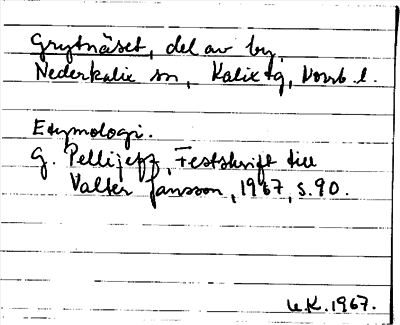 Grytnäset, del av by,
Nederkalix sn, Kalix tg, Norrb. l.
Etymologi.
G. Pellijeff, Festskrift till
Valter Jansson, 1967, s. 90.
U.K. 1967.